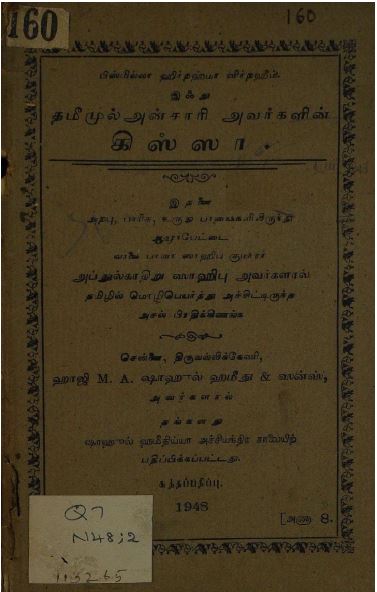 160
160
பிஸ்மில்லா ஹிர்றஹ்மா னிர்றஹீம்.
இஃது
தமீமுல் அன்சாரி அவர்களின்
கிஸ்ஸா.
இதனை
அறபு, பாரிசு, உருது பாஷைகளிலிருந்து
வாலை பாவா ஸாஹிபு குமாரர்
அப்துல்காதிறு ஸாஹிபு அவர்களால்
தமிழில் மொழிபெயர்த்து அச்சிட்டிருந்த
அசல் பிரதிக்கிணங்க
சென்னை, திருவல்லிக்கேணி,
ஹாஜி M. A. ஷாஹுல் ஹமீது & ஸன்ஸ்,
அவர்களால்
தங்களது
ஷாஹுல் ஹமீதிய்யா அச்சியந்திர சாலையிற்
பதிப்பிக்கப்பட்டது.
சுத்தப்பதிப்பு.
1948
[அணா 8.
Q7
N48;2